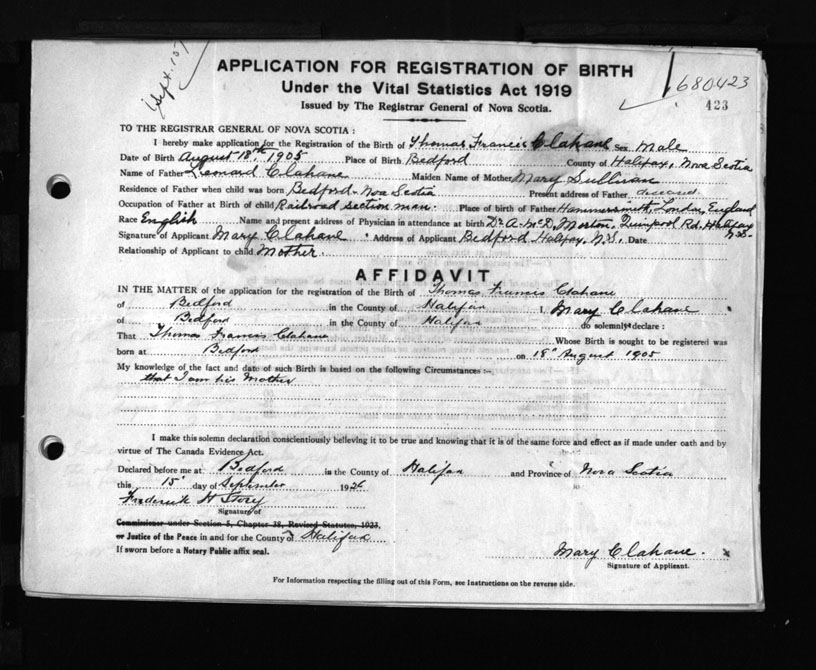 Sept. 15
APPLICATION FOR REGISTRATION OF BIRTH
680423
Under the Vital Statistics Act 1919
423
Issued by The Registrar General of Nova Scotia.
TO THE REGISTRAR GENERAL OF NOVA SCOTIA :
I hereby make application for the Registration of the Birth of Thomas Francis Clahane Sex Male
Date of Birth August 18th, 1905 Place of Birth Bedford County of Halifax, Nova Scotia
Name of Father Leonard Clahane Maiden Name of Mother Mary Sullivan
Residence of Father when child was born Bedford - Nova Scotia Present address of Father deceased
Occupation of Father at Birth of child Railroad section man. Place of birth of Father Hammersmith, London, England
Race English Name and present address of Physician in attendance at birth Dr. A. McD. Morton, Quinpool Rd. Halifax N.S.
Signature of Applicant Mary Clahane Address of Applicant Bedford, Halifax, N.S. Date
Relationship of Applicant to child Mother.
AFFIDAVIT
IN THE MATTER of the application for the registration of the Birth of Thomas Francis Clahane
of Bedford in the County of Halifax I, Mary Clahane
of Bedford in the County of Halifax do solemnly declare :
That Thomas Francis Clahane Whose Birth is sought to be registered was
born at Bedford on 18" August 1905
My knowledge of the fact and date of such Birth is based on the following Circumstances :-
that I am his Mother
I make this solemn declaration conscientiously believing it to be true and knowing that it is of the same force and effect as if made under oath and by
virtue of The Canada Evidence Act.
Declared before me at Bedford in the County of Halifax and Province of Nova Scotia
this 15" day of September 1926
Frederick H Story
Signature of
Commissioner under Section 5, Chapter 38, Revised Statutes, 1923,
or Justice of the Peace in and for the County of Halifax
If sworn before a Notary Public affix seal.
Mary Clahane.
Signature of Applicant.
For Information respecting the filling out of this Form, see Instructions on the reverse side.